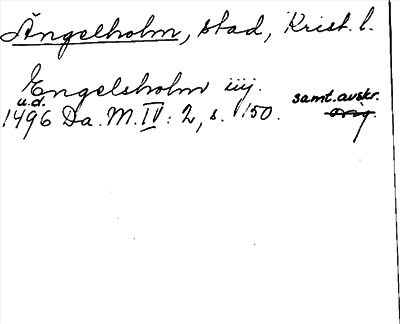 Ängelholm, stad, Krist. l.
Engelsholm iij.
u.d. samt. avskr.
1496 Da. M. IV: 2, s. 150. orig.